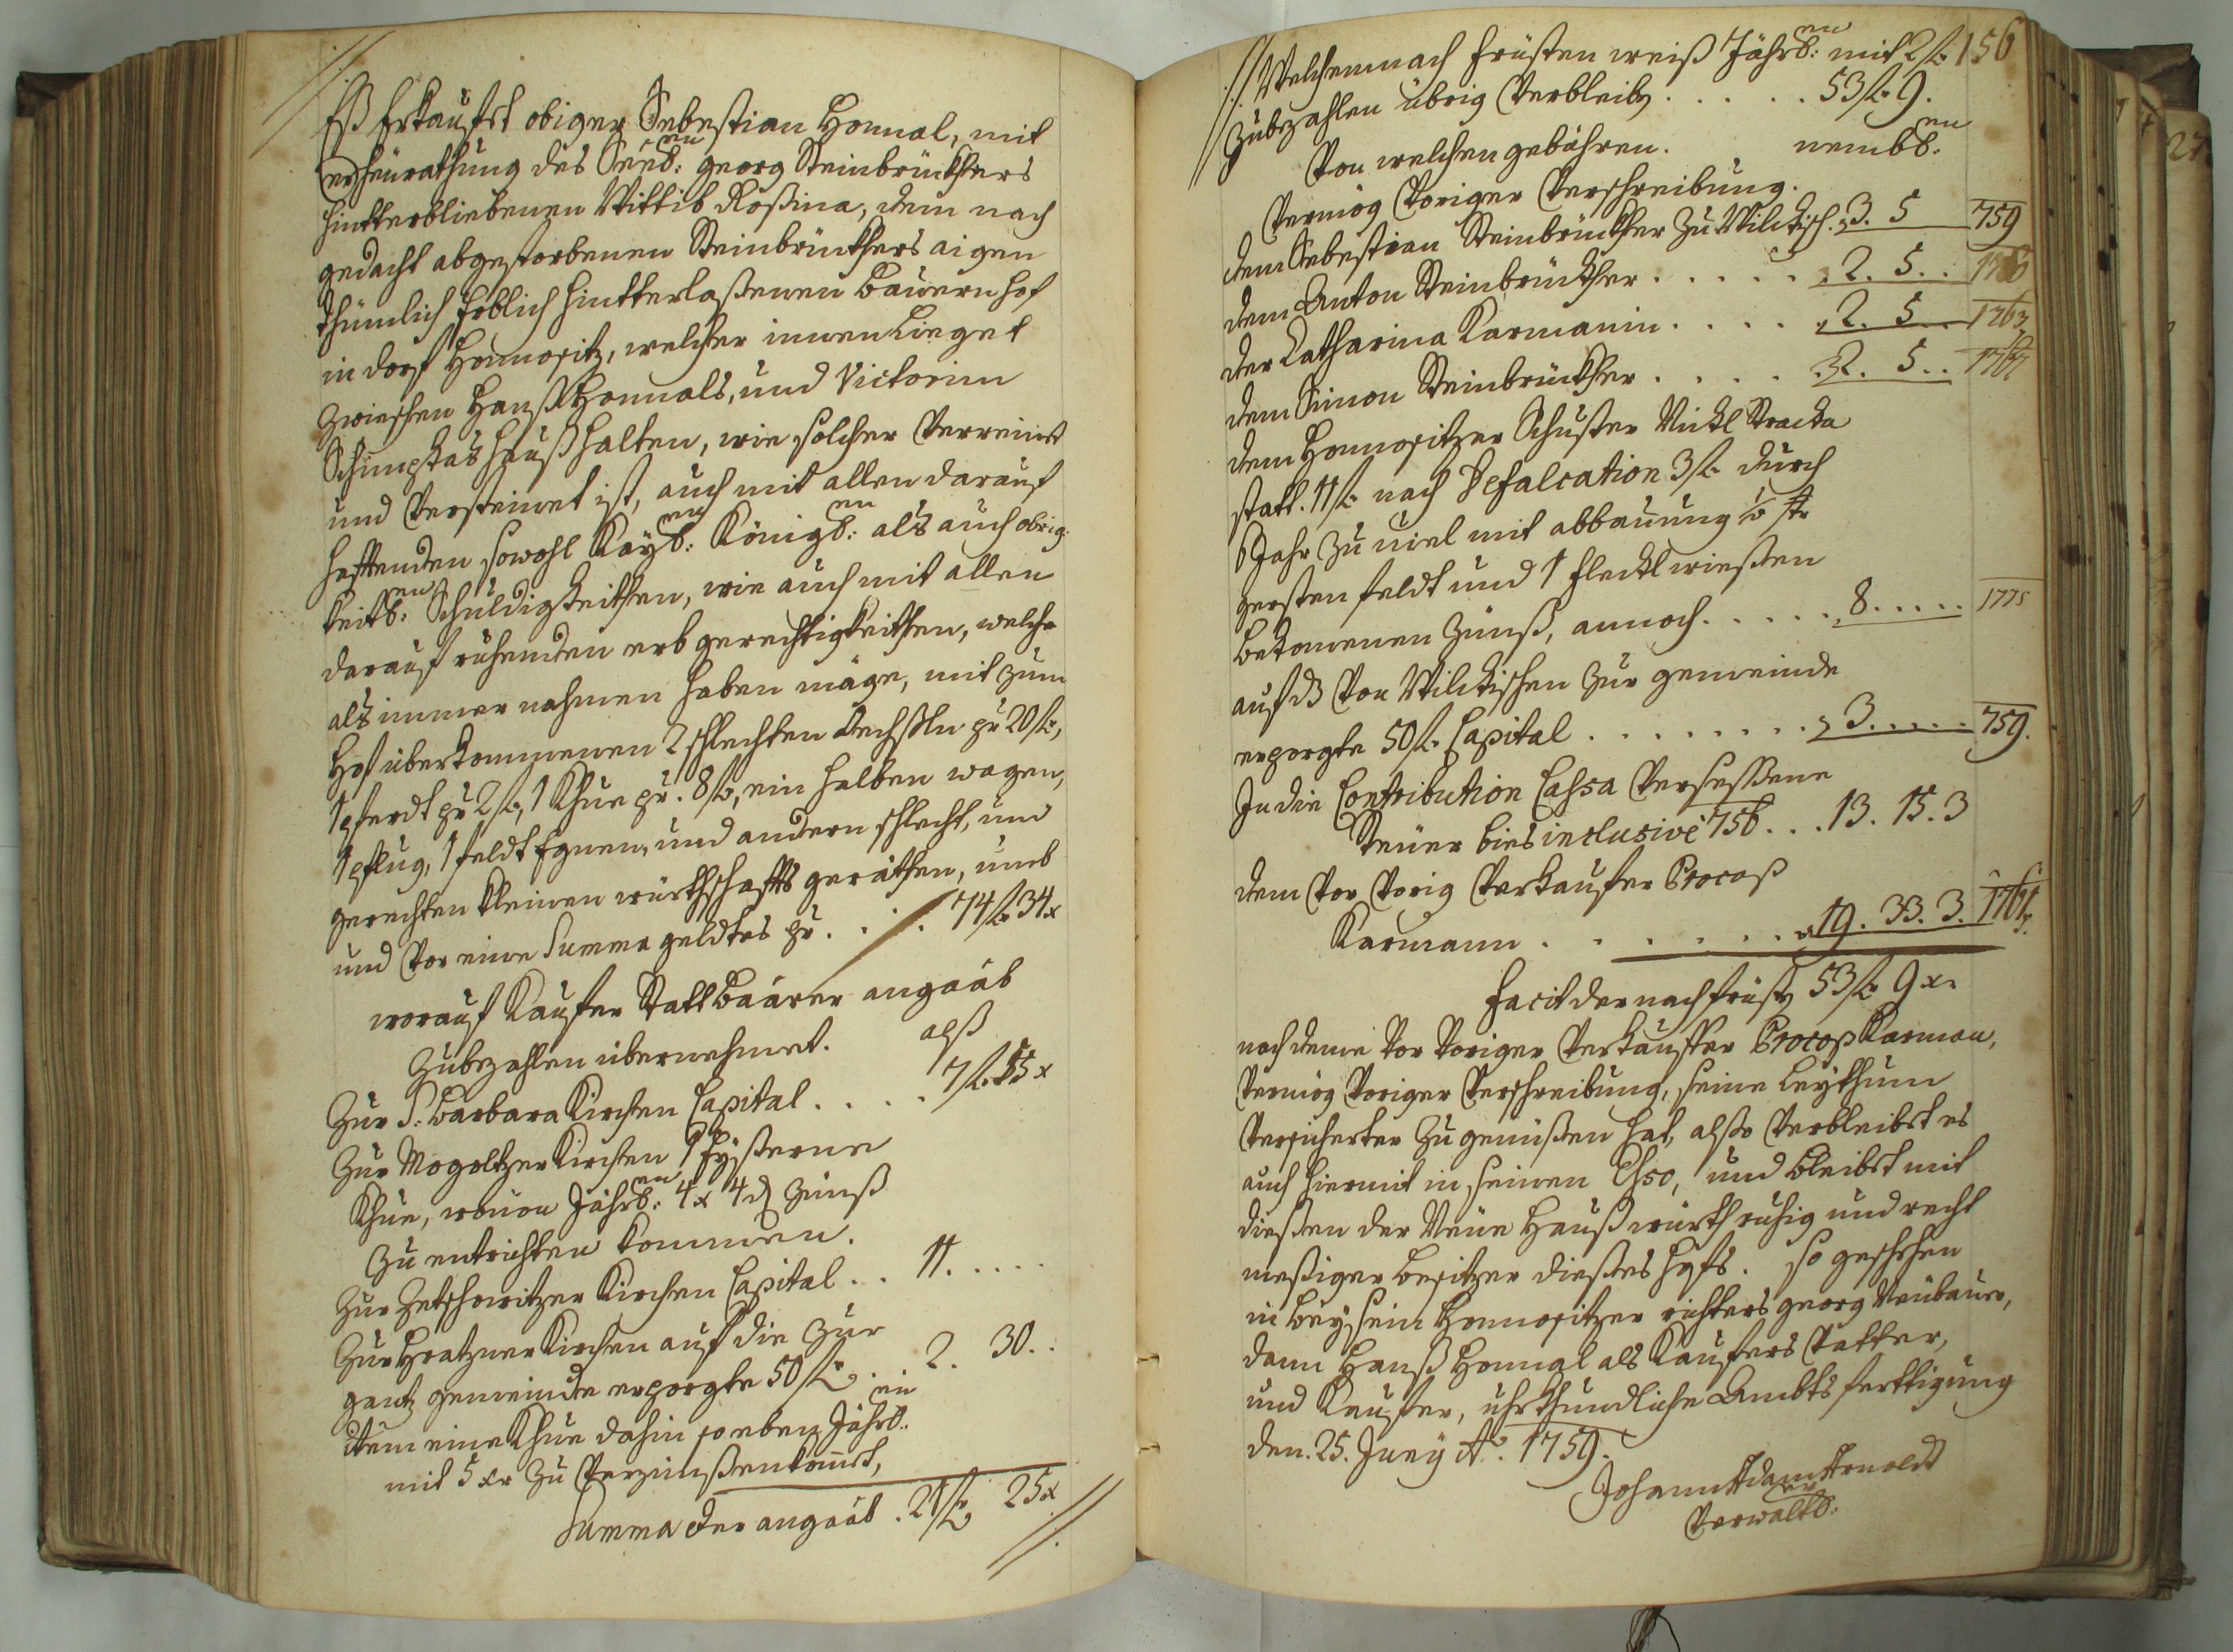 Eß Erkauffet obiger Sebestian Honnal, mit
erheürathung des Seeb:en georg Steinbrückhers
hintterbliebenen Wittib Roßina, dem nach
gedacht abgestorbenen Steinbrückhers aigen
thümlich Erblich hintterlaßenen Bauern hof
in dorf Honnositz, welcher innen Lieget
zwieschen Hanß Honnals, und Victorinn
Schimpkas haußhalten, wie solcher Verreinet
und Versteinet ist, auch mit allen darauf
hafftenden sowohl Kayl:en Königl:en als auch obrig
keitl:en Schuldigkeithen, wie auch mit allen
darauf ruhenden erb gerechtigkeithen, welche
als immer nahmen haben mäge, mit zum
Hof überkommenen 2 schlechten Öechßln pr 20 f,
1 pferdt pr 2 f, 1 Khue pr. 8 f, ein halben wagen,
1 pflug, 1 feldt Egnen, und andern schlecht, und
gerechten kleinen würthschaffts geräthen, umb
und Vor eine Summa geldtes pr . . . 74 f 34 x
worauf Kaufer Statt Baarer angaab
zubezahlen übernehmet. alß
Zur S: Barbara Kirchen Capital . . . . 7 f 55 x
Zur Mogoltzer Kirchen 1 Eyßerne
Khue, wouon Jährl:en 4 x 4 d Zünß
zu entrichten kommen.
Zur Zetschowitzer Kirchen Capital . . 11 . . . .
Zur Hratzner Kirchen auf die zur
gantz gemeinde erporgte 50 f . . 2. 30. .
item eine Khue dahin so eben Jährl:
mit 5 xr zu Verzinnßen kommt,
Summa der angaab . 21 f 25 x
156
Welchemnach Früsten weiß Jährl:en mit 2 f
zubezahlen übrig Verbleibz . . . . . 53 f 9.
Von welchen gebähren. nembl:en
Vermög Voriger Verschreibung.
dem Sebestian Steinbrückher zu Wilckisch . 3. 5 759
dem Anton Steinbrückher . . . . . . 2. 5 . . 1760
der Catharina Karmanin . . . . . 2. 5 . . 1763
dem Simon Steinbrückher . . . . . 2. 5 . .
dem Honnositzer Schuster Nickl Stracka
statt. 11 f nach Defalcation 3 f durch
6 Jahr zu uiel mit abbauung
gersten feldt und 1 fleckl wießen
bekomenen Zünß, annoch . . . . . . 8 . . . . . 1775
auf dz Von Wilckischen zur gemeinde
erporgte 50 f Capital . . . . . . . . 3 . . . . . 759.
In die Contribution Cassa Verseßene
Steüer bies inclusive 758 . . . 13. 15. 3
dem Vor Vorig Verkaufer Procop
Karmann . . . . . . . . 19. 33. 3.
Facit der nachfrüstz 53 f 9 x.
nach deme Vor Voriger Verkauffer Procop Karman,
Vermög Voriger Verschreibung, seine Leythum
Versicherter zu genüßen hat, alßo Verbleibet es
auch hiermit in seinen Esso, und bleibet mit
dießen der Neüe Haußwürth ruhig und recht
meßiger besitzer dießes hofs. So geschehen
in beysein Honnositzer richters georg Neübauer,
dann Hanß Honnal als Kaufers Vatter,
und Kaufer, uhrkhundliche Ambts ferttigung
den. 25. Juny Ao. 1759.
Johann Adam Arnoldt
Verwalter